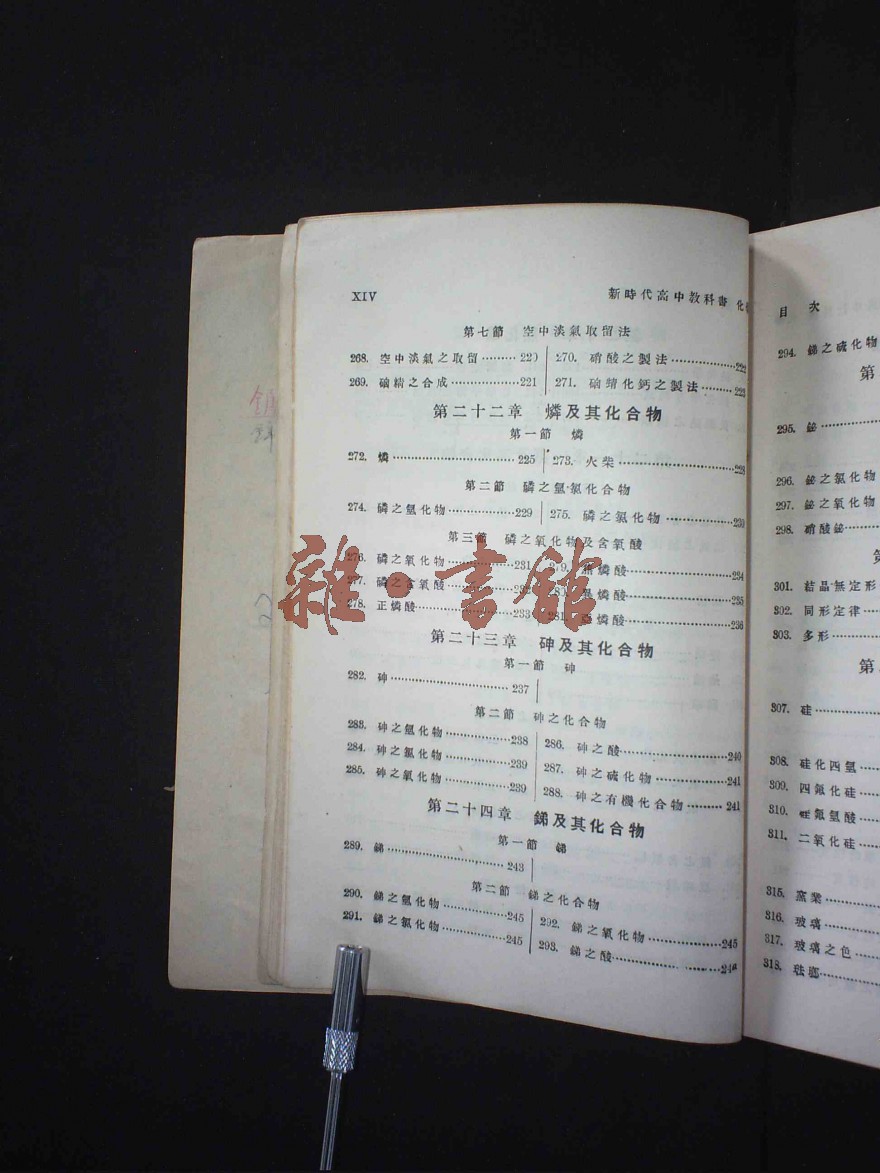 XIV 新時代高中教科書 化
第七節 空中淡氣取留法
268. 空中淡氣之取留……… 22) 270. 硝酸之製法……………222
269. 硇精之合成……………221 271. 硇精化鈣之製法………223
第二十二章 燐及其化合物
第一節 燐
272. 燐…………………………225 273. 火柴……………………228
第二節 磷之氫氯化合物
274. 磷之氫化物………………229 275. 磷之氯化物……………230
第三節 磷之氧化物及含氧酸
276. 磷之氧化物……………231 燐酸……………………234
277. 磷之含氧酸……………232 燐酸……………………235
278. 正燐酸…………………233 281. 燐酸……………………236
第二十三章 砷及其化合物
第一節 砷
282. 砷…………………………237
第二節 砷之化合物
283. 砷之氫化物……………238 286. 砷之酸…………………240
284. 砷之氯化物……………239 287. 砷之硫化物……………241
285. 砷之氧化物……………239 288. 砷之有機化合物………241
第二十四章 銻及其化合物
第一節 銻
289. 銻…………………………243
第二節 銻之化合物
290. 銻之氫化物……………245 292. 銻之氧化物……………245
291. 銻之氯化物……………245 293. 銻之酸…………………24
目 次
294. 銻之硫化物
第
295. 鉍
296. 鉍之氯化物
297. 鉍之氧化物
298. 硝酸鉍
第
301. 結晶無定形
302. 同形定律
303. 多形
第
307. 硅
308. 硅化四氫
309. 四氟化硅
310. 硅氟氫酸
311. 二氧化硅
315. 窯業
316. 玻璃
317. 玻璃之色
318. 琺瑯
雜·書館